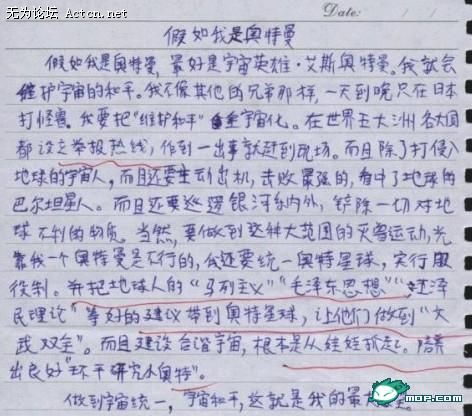 无为论坛 Actcn.net
Date:
假如我是奥特曼
假如我是奥特曼,最好是宇宙英雄·艾斯奥特曼。我就会
维护宇宙的和平。我不像其他的兄弟那样,一天到晚只在日本
打怪兽。我要把“维护和平”全宇宙化。在世界五大洲各大国
都设立举报热线,作到一出事就赶到现场。而且除了打侵入
地球的宇宙人,而且还要主动出机,击败最强的,看中了地球的
巴尔坦星人。而且还要巡逻银河系内外,铲除一切对地
球不利的物质。当然,要做到这种大范围的灭害运动,光
靠我一个奥特曼是不行的,我还要统一奥特星球,实行服
役制。并把地球人的“马列主义”“毛泽东思想”“江泽
民理论”等好的建议带到奥特星球,让他们做到“文
武双全”。而且建设合谐宇宙,根本是从娃娃抓起。培养
出良好“环平研究小奥特”。
做到宇宙统一,宇宙和平,这就是我的最
MOP.com